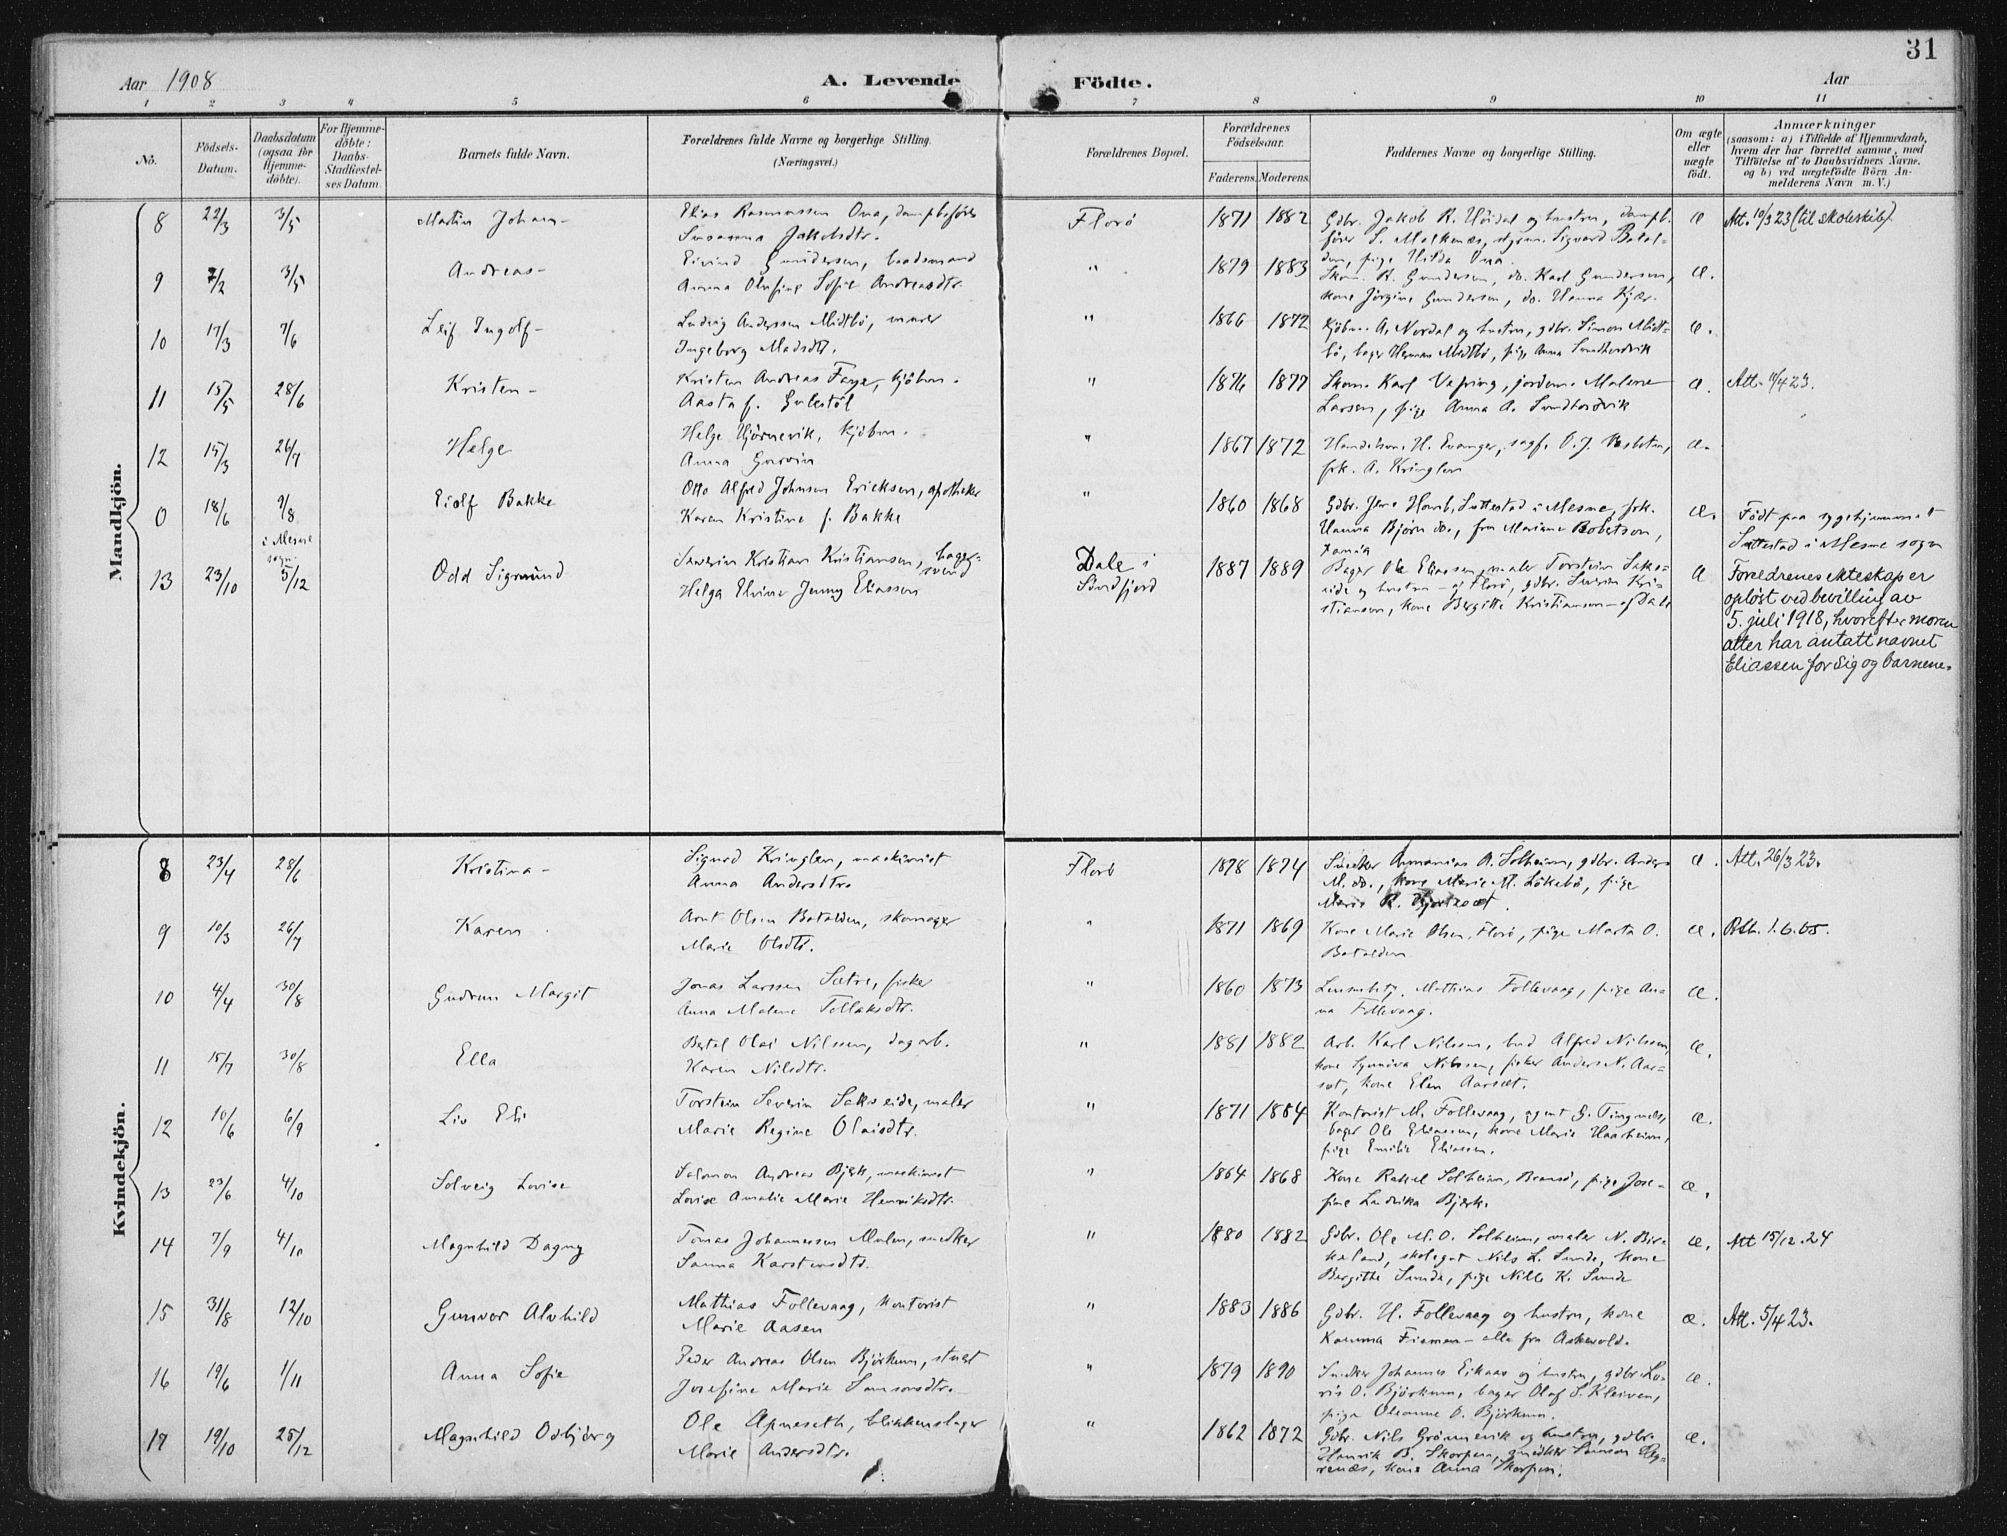 31
Aar 1908
A. Levende
Födte.
Aar
1 2 3 4 5 6 7 8 9 10 11
No.
Födsels-Datum.
Daabsdatum (ogsaa för Hjemme-döbte).
For Hjemme-döbte: Daabs-Stadfæstel-ses Datum
Barnets fulde Navn.
Forældrenes fulde Navne og borgerlige Stilling. (Næringsvei.)
Forældrenes Bopæl.
Forældrenes Födselsaar.
Faderens. Moderens.
Faddernes Navne og borgerlige Stilling.
Om ægte eller uægte födt.
Anmærkninger
(saasom: a) i Tilfælde af Hjemmedaab, hvem der har forrettet samme, med Tilföielse af to Daabsvidners Navne. og b) ved uægtefödte Börn An-melderens Navn m.V.)
Mandkjön.
8 22/3 3/5 Martin Johan- Elias Rasmussen Ona, dampbsfører
Susanna Jakobsdtr.
Florö 1871 1882 Gdbr. Jakob R. Höidal og hustru, dampb.
fører S. Molknæs, styrm. Sigvard Batal-
den, pige Hilda Ona.
æ Att. 10/3 23 (til skoleskib).
9 7/2 3/5 Andreas- Eivind Gundersen, baadsmand
Anna Olufine Sofie Andreasdtr.
" 1879 1883 Skom. R. Gundersen, do. Karl Gundersen,
kone Jörgine Gundersen, do. Hanna Kjær.
æ.
10 17/3 7/6 Leif Ingolf- Ludvig Anderssen Midtbö, murer
Ingeborg Madsdtr.
" 1866 1872 Kjöbm. A. Nordal og hustru, gdbr. Simon Midt-
bö, bager Herman Midtbö, pige Anna Sundhordvik
æ.
11 15/5 28/6 Kristen- Kristen Andreas Faye, kjöbm.
Aasta f. Gulestöl
" 1876 1877 Skom. Karl Vefring, jordm. Malene
Larsen, pige Anna A. Sundhordvik
æ. Att. 11/4 23.
12 15/3 26/7 Helge Helge Hjörnevik, kjöbm.
Anna
" 1867 1872 H. Evanger, sagf. O. J.
frk. A. Kringlen
æ.
0 18/6 9/8 i Mesne sogn Eiolf Bakke Otto Alfred Johnsen Ericksen, apotheker
Karen Kristine f. Bakke
" 1860 1868 Gdbr. Jens Hamb, Suttestad i Mesne, frk.
Hanna Björn do., fru Mariane Robertson,
æ. Födt paa sygehjemmet
Suttestad i Mesne sogn
13 23/10 5/12 Odd Sigmund Severin Kristian Kristiansen, bager-
svend
Helga Elvine Jenny Eliassen
Dale i
Söndfjord
1887 1889 Bager Ole Eliassen, maler Torstein Saks-
eide og hustru - af Florö, gdbr. Severin Kri-
stiansen, kone Bergitte Kristiansen - af Dale
æ Foreldrenes ekteskap er
oplöst ved bevilling av
5. juli 1918, hvorefter moren
atter har antatt navnet
Eliassen for sig og barnene.
Kvindekjön.
8 23/4 28/6 Kristina- Sigurd Kringlen, maskinist
Anna Andersdtr.
Florö 1878 1874 Snedker Annanias A. Solheim, gdbr. Anders
M. do., kone Marie M. Lökebö, pige
Marie R.
æ. Att. 26/3 23.
9 10/3 26/7 Karen Arnt Olsen Batalden, skomager
Marie Olsdtr.
" 1871 1869 Kone Marie Olsen, Florö, pige Marta O.
Batalden
æ. 1.6.65.
10 4/4 30/8 Gudrun Margit Jonas Larssen Sætre, fisker
Anna Malene Tollaksdtr.
" 1860 1873 Mathias Follevaag, pige An-
na Follevaag.
æ.
11 15/7 30/8 Ella Bertel Olai Nilssen, dagarb.
Karen Nilsdtr.
" 1881 1882 Arb. Karl Nilssen, bud Alfred Nilssen,
kone Synnöva Nilssen, fisker Anders N. Aar-
set, kone Elen Aarsæt.
æ.
12 10/6 6/9 Liv Eli Torstein Severin Sakseide, maler
Marie Regine Olaisdtr.
" 1871 1884 Kontorist M. Follevaag, agent G. Tingnæs,
bager Ole Eliassen, kone Marie Haarheim,
pige Emilie Eliassen.
æ.
13 23/6 4/10 Solveig Lovise Salomon Andreas Bjerk, maskinist
Lovise Amalie Marie Henriksdtr.
" 1864 1868 Kone Rakel Solheim, Bransö, pige Jose-
fine Ludvika Bjerk.
æ.
14 7/9 4/10 Magnhild Dagny Tomas Johannessen Mulen, snedker
Sanna Karstensdtr.
" 1880 1882 Gdbr. Ole M. O. Solheim, maler N. Bir-
keland, skolegut Nils L. Sunde, kone
Bergithe Sunde, pige Nille K. Sunde
æ. Att 15/12.24
15 31/8 12/10 Gunvor Alvhild Mathias Follevaag, kontorist
Marie Aasen
" 1883 1886 Gdbr. H. Follevaag og hustru, kone
Kamma - alle fra Askevold.
æ. Att. 5/4 23.
16 19/6 1/11 Anna Sofie Peder Andreas Olsen Björkum,
Josefine Marie Samsonsdtr.
" 1879 1890 Snedker Johannes Eikaas og hustru, gdbr. La-
ris O. Björkum, bager Olaf S. Kleiven,
pige Oleanne O. Björkum.
æ.
17 19/10 25/12 Magnhild Odbjörg Ole Apneseth, blikkenslager
Marie Andersdtr.
" 1862 1872 Gdbr. Nils Grönnevik og hustru, gdbr.
Henrik B. Skorpen, snedker Samson
kone Anna Skorpen.
æ.